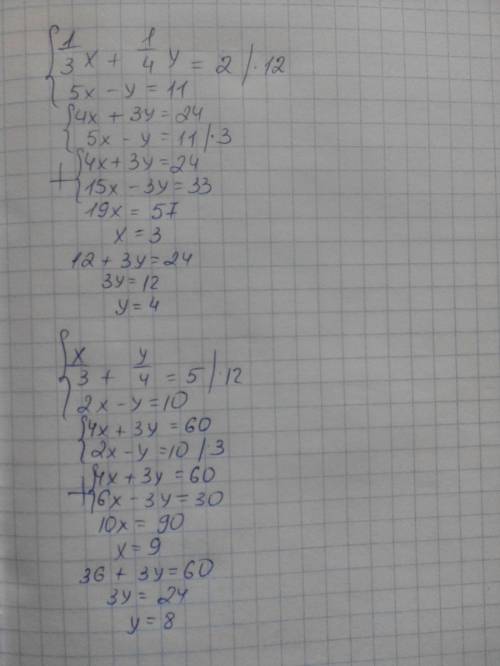 {1/3 x + 1/4 y = 2 /·12
5x - y = 11
{4x + 3y = 24
5x - y = 11 /·3
+{4x + 3y = 24
15x - 3y = 33
19x = 57
x = 3
12 + 3y = 24
3y = 12
y = 4
{x/3 + y/4 = 5 /·12
2x - y = 10
{4x + 3y = 60
2x - y = 10 /·3
+{4x + 3y = 60
6x - 3y = 30
10x = 90
x = 9
36 + 3y = 60
3y = 24
y = 8